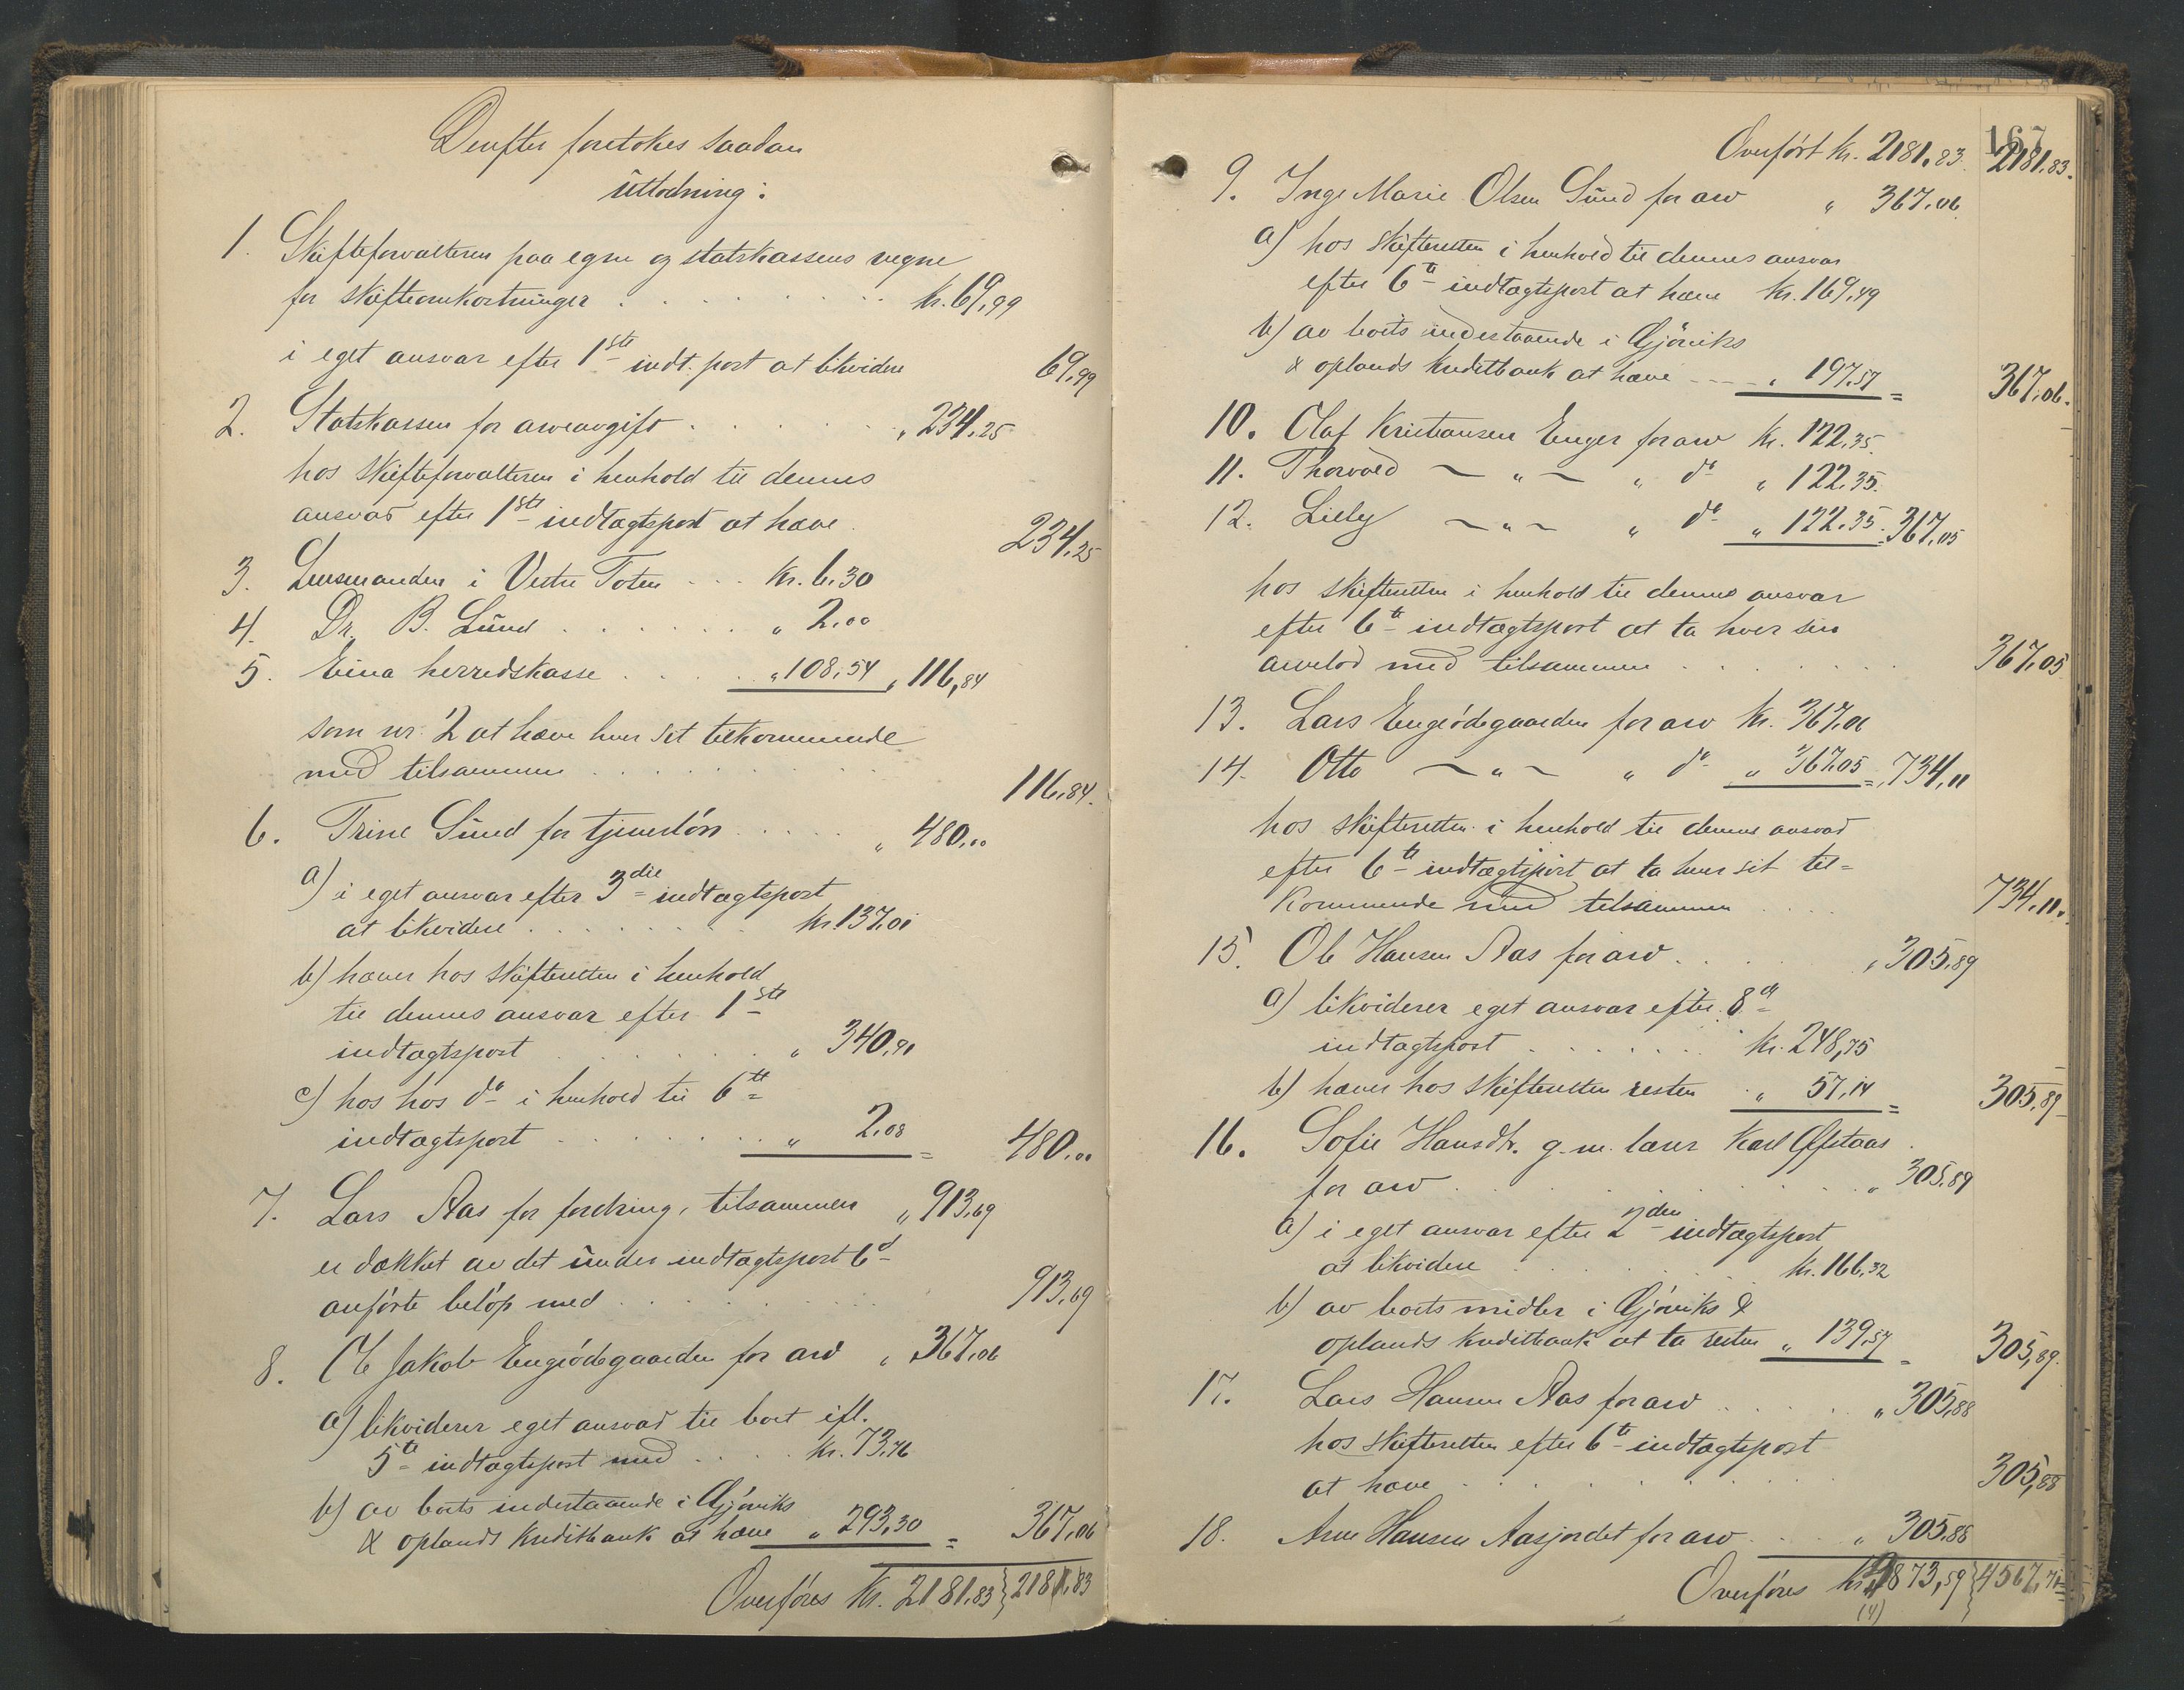 Derefter foretokes saadan
utlodning:
1. Skifteforvalteren paa egne og statskassens vegne
for skifteomkostninger . . . . kr. 69,99
i eget ansvar efter 1ste indt. post at likvidere 69,99
2. Statskassen for arveavgift . . . . „ 234,25
hos skifteforvalteren i henhold til dennes
ansvar efter 1ste indtægtspost at hæve 234,25
3. Lensmanden i Vestre Toten . . . kr. 6,30
4. Dr. B. Lund . . . . „ 2,00
5. Eina herredskasse . . . . „ 108,54 „ 116,84
som nr. 2 at hæve hver sit tilkommende
med tilsammen . . . . 116,84.
6. Trine Sund for tjenerløn . . . . „ 480,00
a) i eget ansvar efter 3die indtægtspost
at likvidere . . . . kr. 137,01
b) hæver hos skifteretten i henhold
til dennes ansvar efter 1ste
indtægtspost . . . . „ 340,91
c) hos hos do i henhold til 6te
indtægtspost . . . . „ 2,08 = 480,00
7. Lars Aas for fordring, tilsammen „ 913,69
er dækket av det under indtægtspost 6
anførte beløp med . . . . 913,69
8. Ole Jakob Engrødegaarden for arv „ 367,06
a) likviderer eget ansvar til boet ifl.
5te indtægtspost med . . . . kr. 73,76
b) av boets indestaaende i Gjøviks
& oplands kreditbank at hæve „ 293,30 = 367,06
Overføres kr. 2181,83 } 2181,83
167
Overført kr. 2181,83. 2181,83.
9. Inge Marie Olsen Sund for arv „ 367,06
a) hos skifteretten i henhold til dennes ansvar
efter 6te indtægtspost at hæve kr. 169,49
b) av boets indestaaende i Gjøviks
& oplands kreditbank at hæve - - - „ 197,57 = 367,06.
10. Olaf Kristiansen Enger for arv kr. 122,35.
11. Thorvald — „ — „ do „ 122,35.
12. Lilly — „ — „ do „ 122,35. 367,05
hos skifteretten i henhold til dennes ansvar
efter 6te indtægtspost at ta hver sin
arvelod med tilsammen . . . . 367,05
13. Lars Engrødegaarden for arv kr. 367,06
14. Otto — „ — „ do „ 367,05 = „ 734,11
hos skifteretten i henhold til dennes ansvar
efter 6te indtægtspost at ta hver sit til=
kommende med tilsammen . . . . 734,11.
15. Ole Hansen Aas for arv . . . . „ 305,89
a) likviderer eget ansvar efter 8de
indtægtspost . . . . kr. 248,75
b) hæver hos skifteretten resten „ 57,14 = 305,89
16. Sofie Hansdtr. g. m. lærer Karl Øfstaas
for arv . . . . „ 305,89
a) i eget ansvar efter 2den indtægtspost
at likvidere . . . . kr. 166,32
b) av boets midler i Gjøviks &
oplands kreditbank at ta resten „ 139,57 = 305,89.
17. Lars Hansen Aas for arv . . . . „ 305,88
hos skifteretten efter 6te indtægtspost
at hæve . . . . 305,88
18. Arne Hansen Aasjordet for arv . . . . „ 305,88
Overføres kr. 4873,59 } 4567,71=
(4)